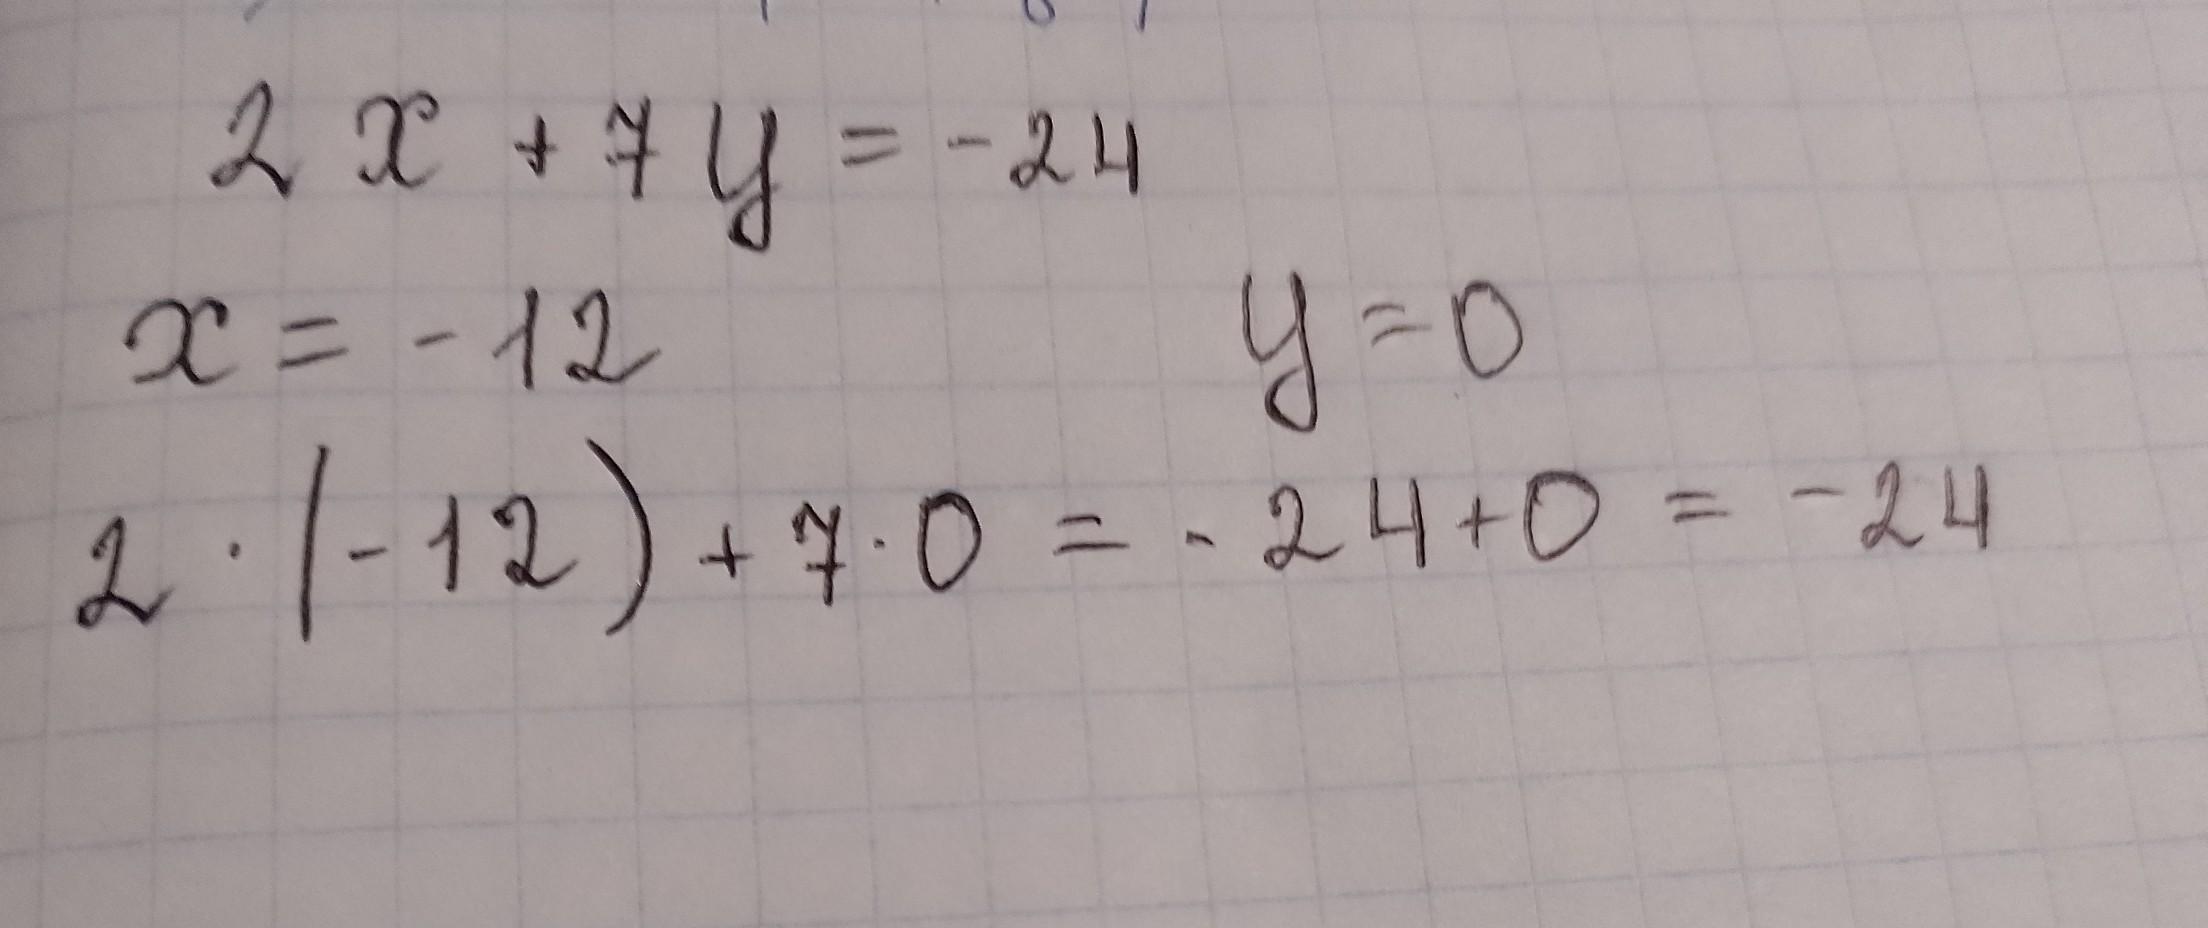 2x + 7y = -24
x = -12 y = 0
2 · (-12) + 7 · 0 = -24 + 0 = -24